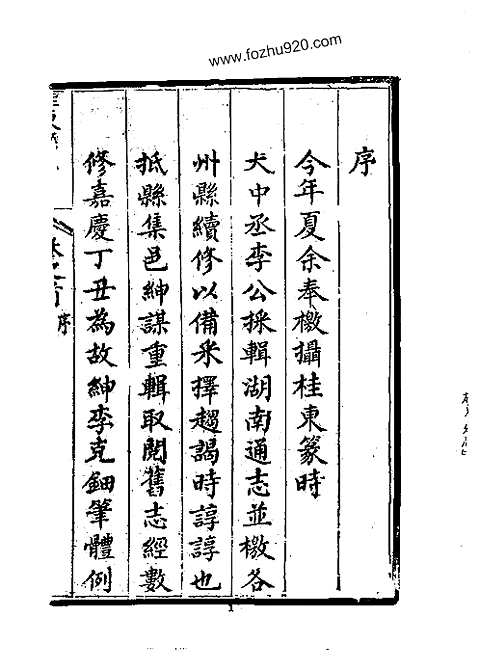 www.fozhu920.com
序
今年夏余奉檄攝桂東篆時
大中丞李公採輯湖南通志並檄各
州縣續修以備采擇趨謁時諄諄也
抵縣集邑紳謀重輯取閱舊志經數
修嘉慶丁丑為故紳李克鈿筆體例
卷之首
序
1